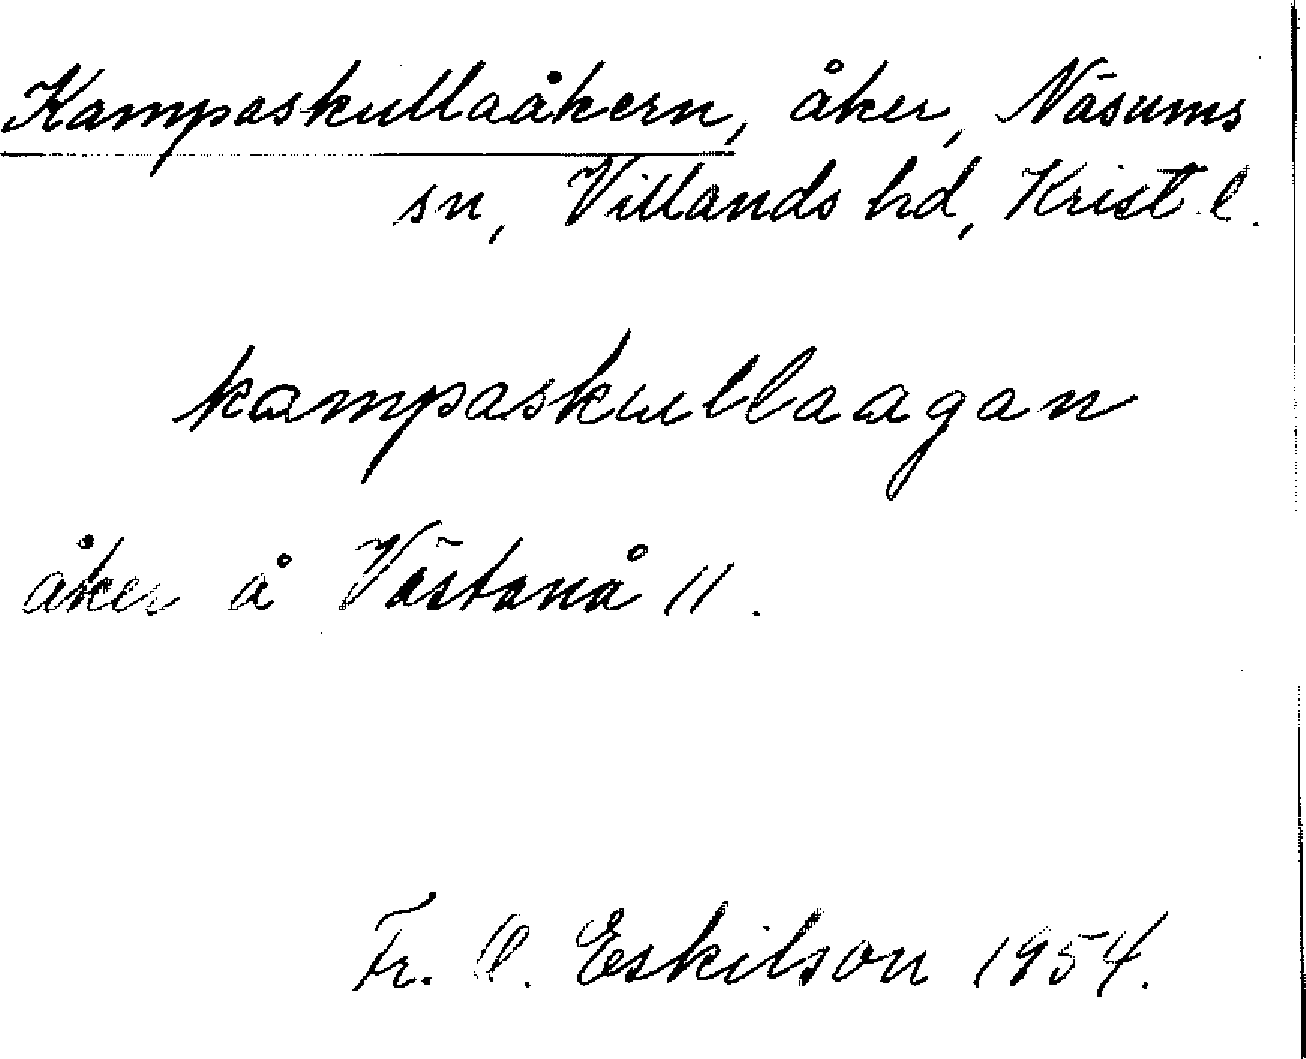 Kampaskullaåkern, åker, Näsums
sn, Villands hd, Krist. l.
kampaskullaagan
åker å Västanå 11.
Fr. O. Eskilson 1954.